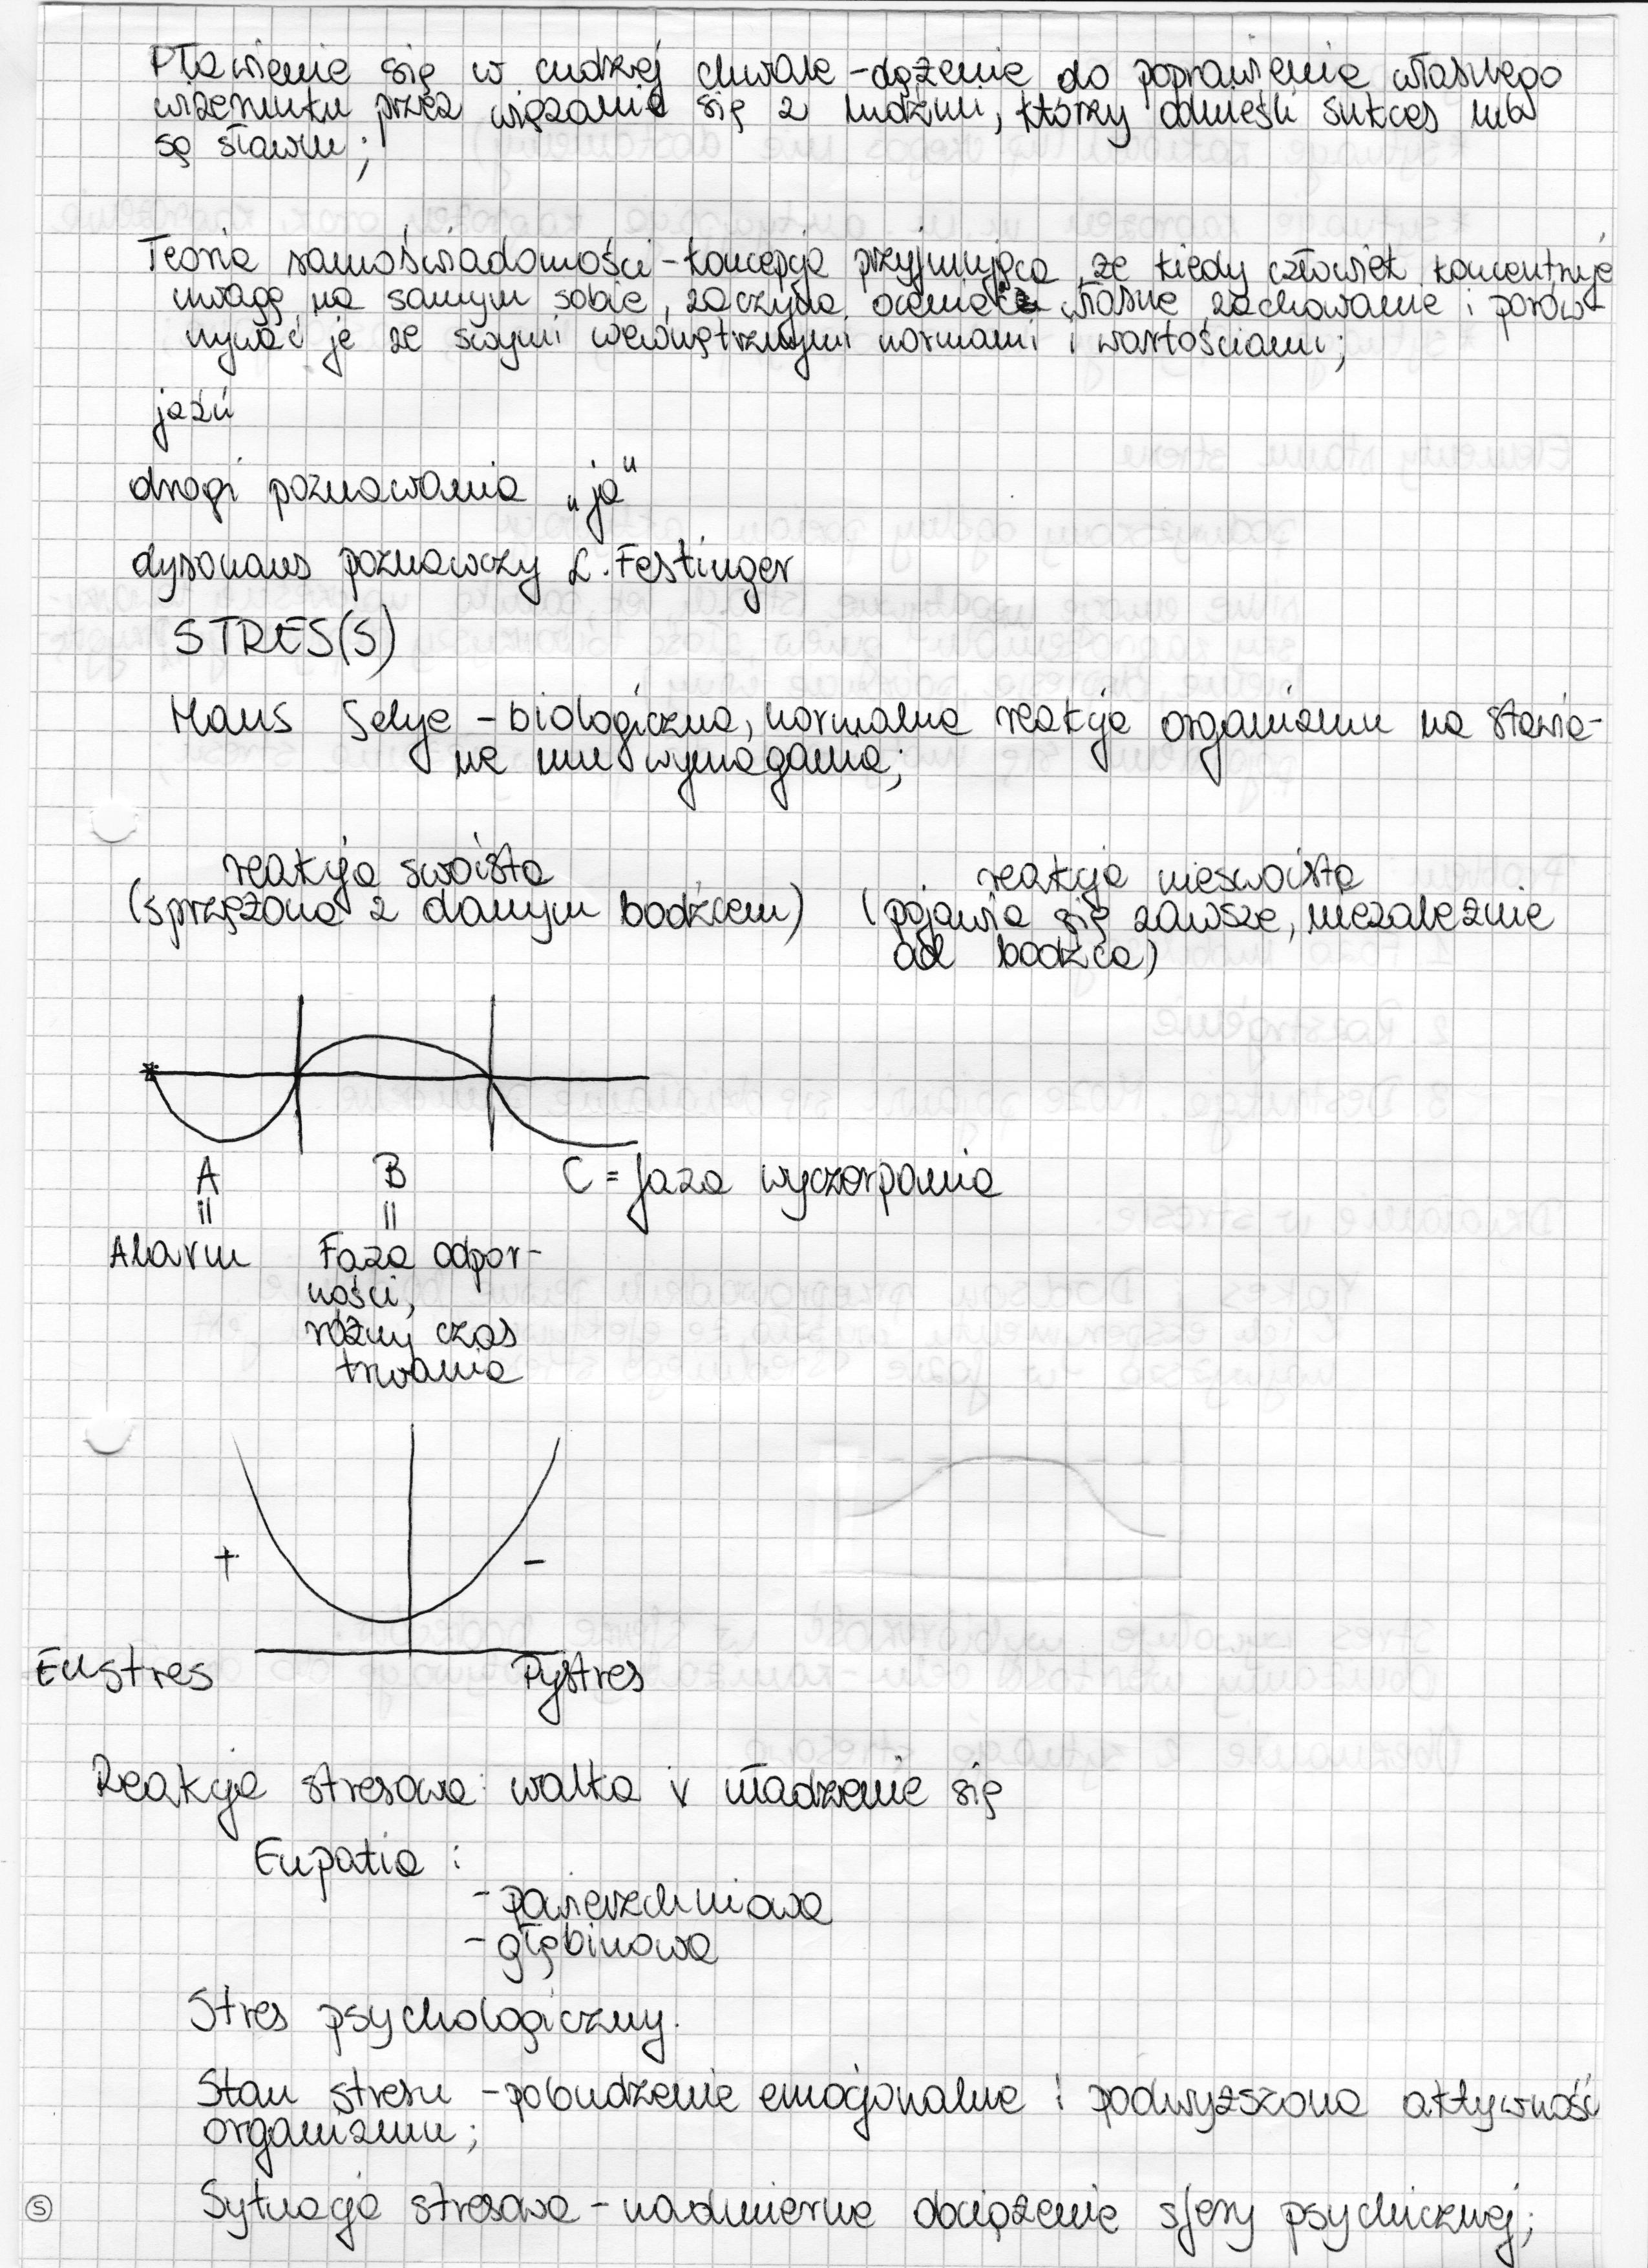 Pławienie się w cudzej chwale - dążenie do poprawienia własnego
wizerunku przez wiązanie się z ludźmi, którzy odnieśli sukces lub
są sławni;
Teoria samoświadomości - koncepcja przyjmująca, że kiedy człowiek koncentruje
uwagę na samym sobie, zaczyna oceniać własne zachowanie i porów-
nywać je ze swymi wewnętrznymi normami i wartościami;
jaźń
drogi poznawania „ja"
dysonans poznawczy L. Festinger
STRES(S)
Hans Selye - biologiczna, normalna reakcja organizmu na stawia-
ne mu wymagania;
reakcja swoista
(sprzężona z danym bodźcem)
reakcja nieswoista
(pojawia się zawsze, niezależnie
od bodźca)
A
=
Alarm
B
=
Faza odpor-
ności,
różny czas
trwania
C = faza wyczerpania
+
-
Eustres
Dystres
Reakcja stresowa: walka v układzenie się
Eupatia:
- powierzchniowa
- głębinowa
Stres psychologiczny.
Stan stresu - pobudzenie emocjonalne i podwyższona aktywność
organizmu;
Sytuacja stresowa - nadmierne obciążenie sfery psychicznej;
5